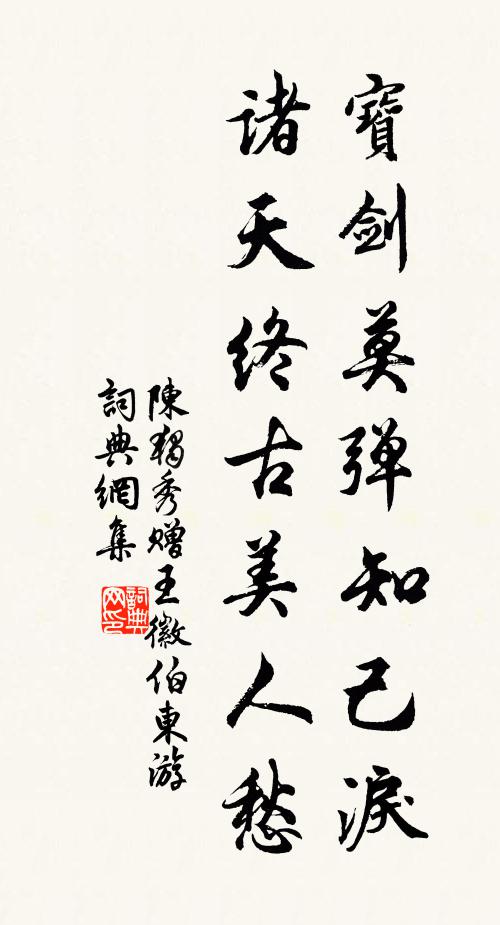 寶劍莫彈知己淚
諸天終古美人愁
陳獨秀贈王徽伯東游
詞典網集
詞典网印